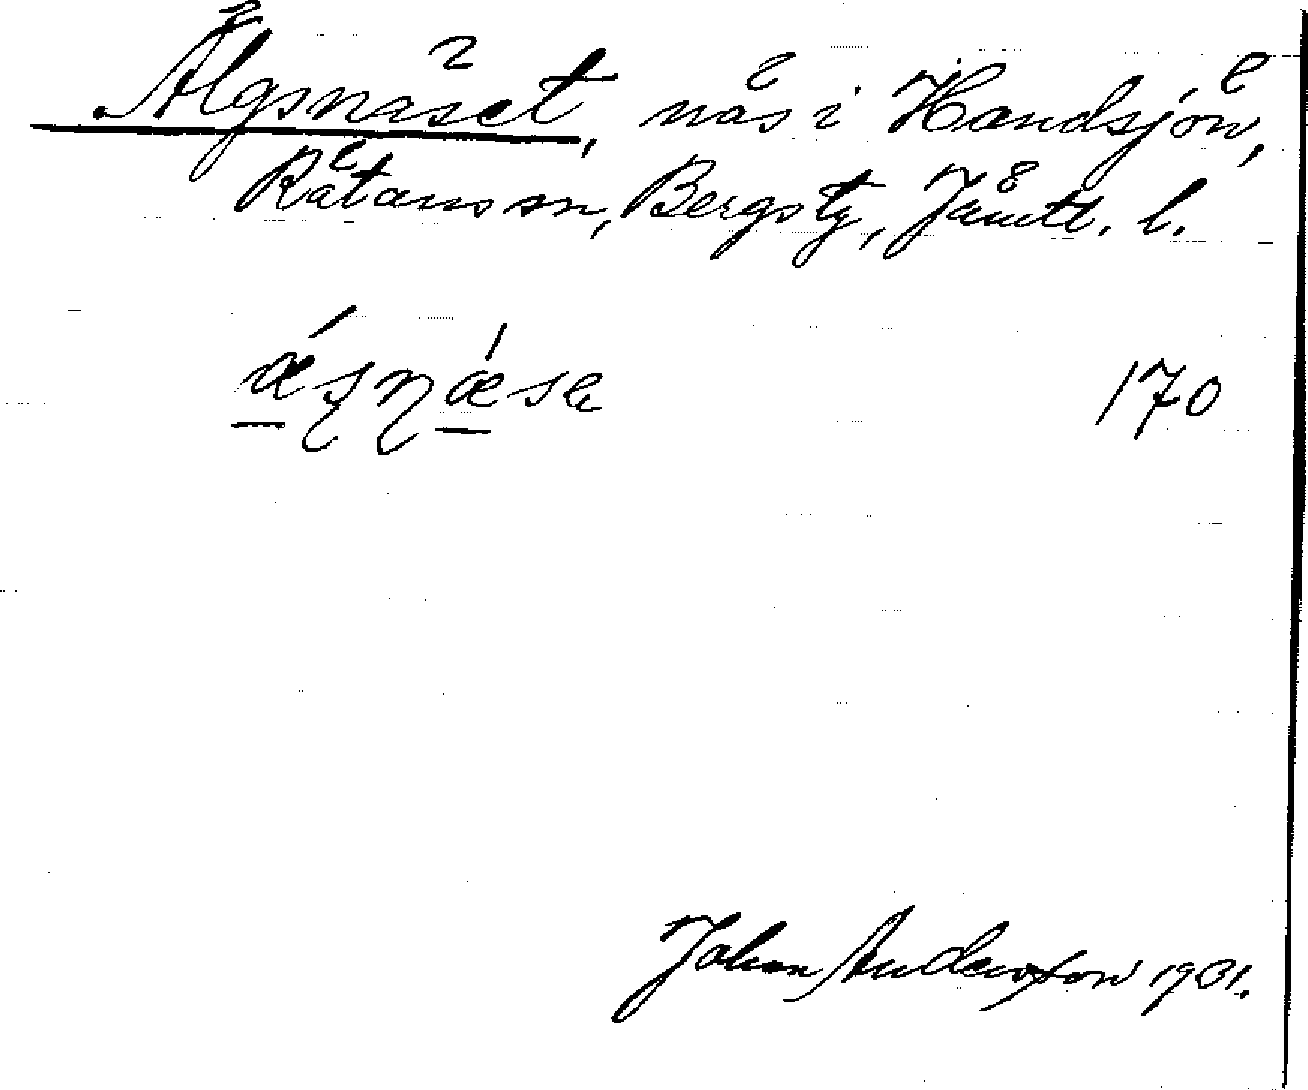 Älgsnäset, näs i Handsjön,
Rätans sn, Bergs tg, Jämtl. l.
ǽʂɳǽsɐ 170
Johan Andersson 1931.